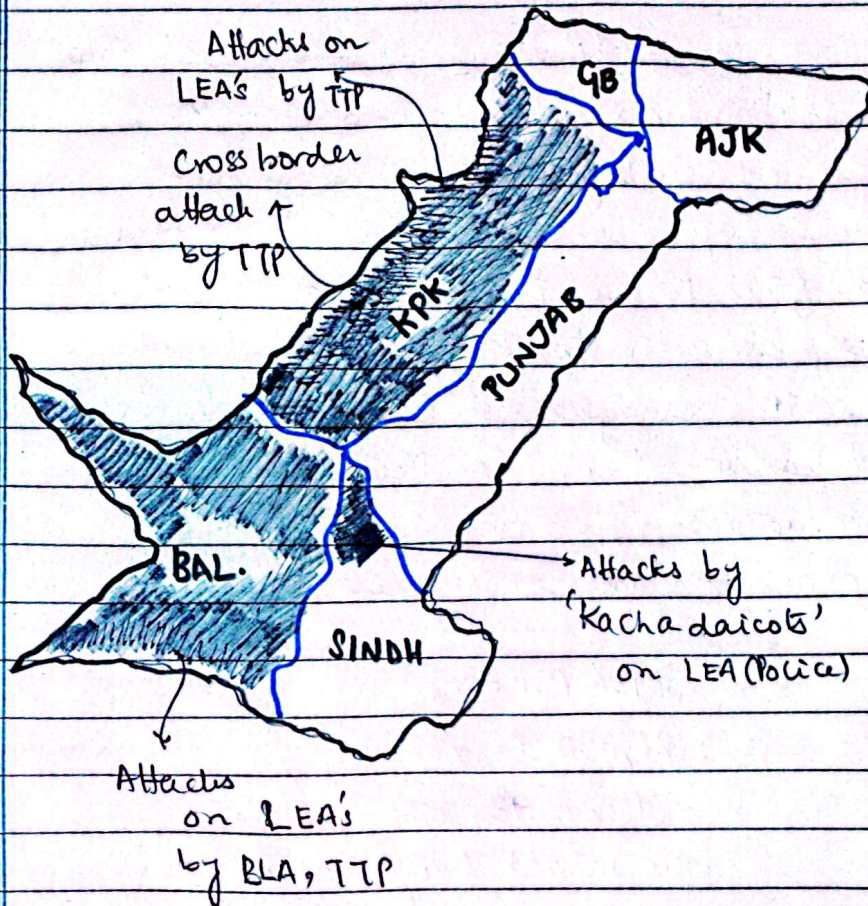 Attacks on
LEA's by TTP
Cross border
attack
by TTP
GB
AJK
KPK
PUNJAB
BAL.
SINDH
Attacks by
'Kacha daicots'
on LEA (Police)
Attacks
on LEA's
by BLA, TTP